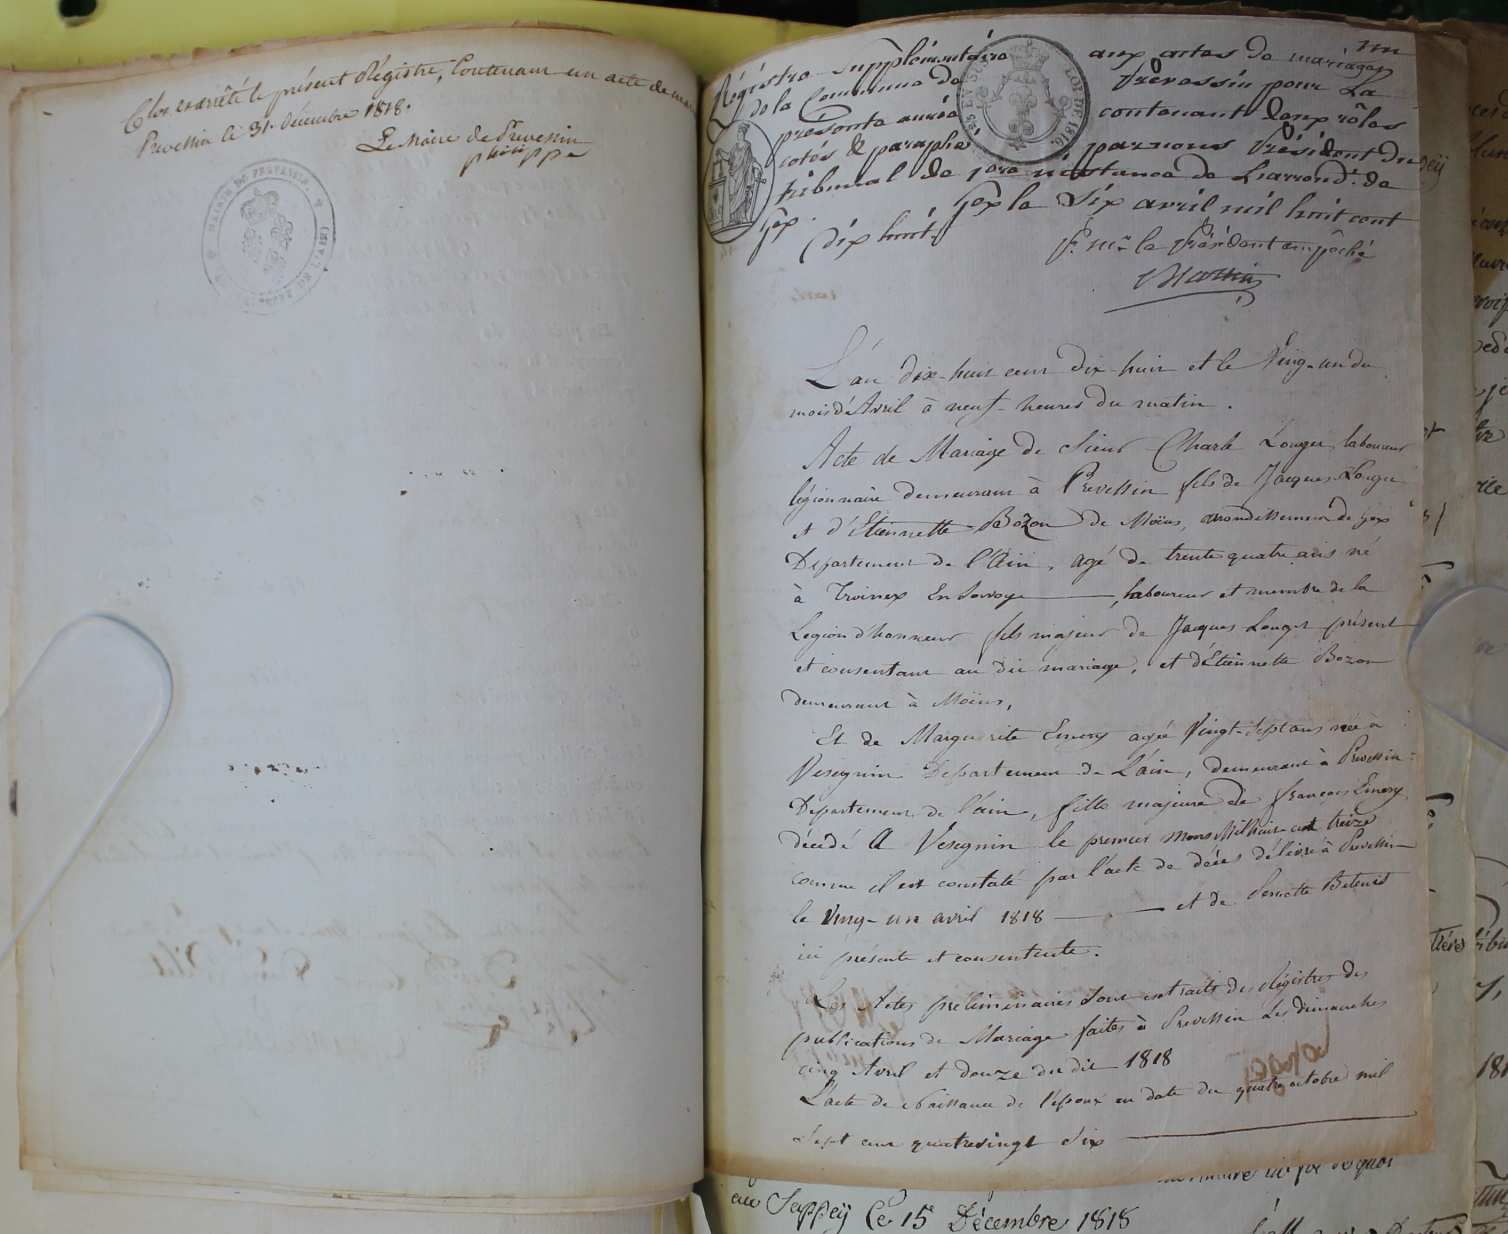 Clos et arrêté le présent Régistre, Contenant un acte de
Prevessin le 31 décembre 1818.
Le Maire de Prevessin
philippe
MAIRIE DE PREVESSIN
un
Régistre Supplémentaire aux actes de mariages
de la Commune de Prévessin pour La
présente année contenant deux rôles
cotés & paraphé par nous Président du
tribunal de 1ere instance de L'arrondt. de
Gex. Gex le Six avril mil huit cent
dix huit.
Pr. mr. le Président empêché
L'an dix-huit cent dix-huit et le Vingt-un du
mois d'Avril à neuf heures du matin.
Acte de Mariage de Sieur Charle Longet, laboureur
légionnaire demeurant à Prevessin fils de Jacques Longet
et d'Etiennette Bozon de Moëns, arrondissement de Gex
Département de l'Ain, agé de trente quatre ans né
à Troinex En Savoye, laboureur et membre de la
Legion d'honneur fils majeur de Jacques Longet présent
et consentant au dit mariage, et d'Etiennette Bozon
demeurant à Moëns,
Et de Marguerite Emery agée Vingt-Sept ans née à
Vesegnin Département de L'ain, demeurant à Prevessin
Departement de l'ain, fille majeure de françois Emery
décédé A Vesegnin le premier mars Mil huit cent treize
comme il est constaté par l'acte de décès délivré à Prevessin
le Vingt-un avril 1818 et de Pernette
ici présente et consentente.
Les Actes préliminaires Sont extraits des Régistres des
publications de Mariage faites à Prevessin Les dimanches
cinq Avril et douze du dit 1818
L'acte de Naissance de l'époux en date du quatre octobre mil
Sept cent quatrevingt Six
au Sappey Ce 15 Décembre 1818